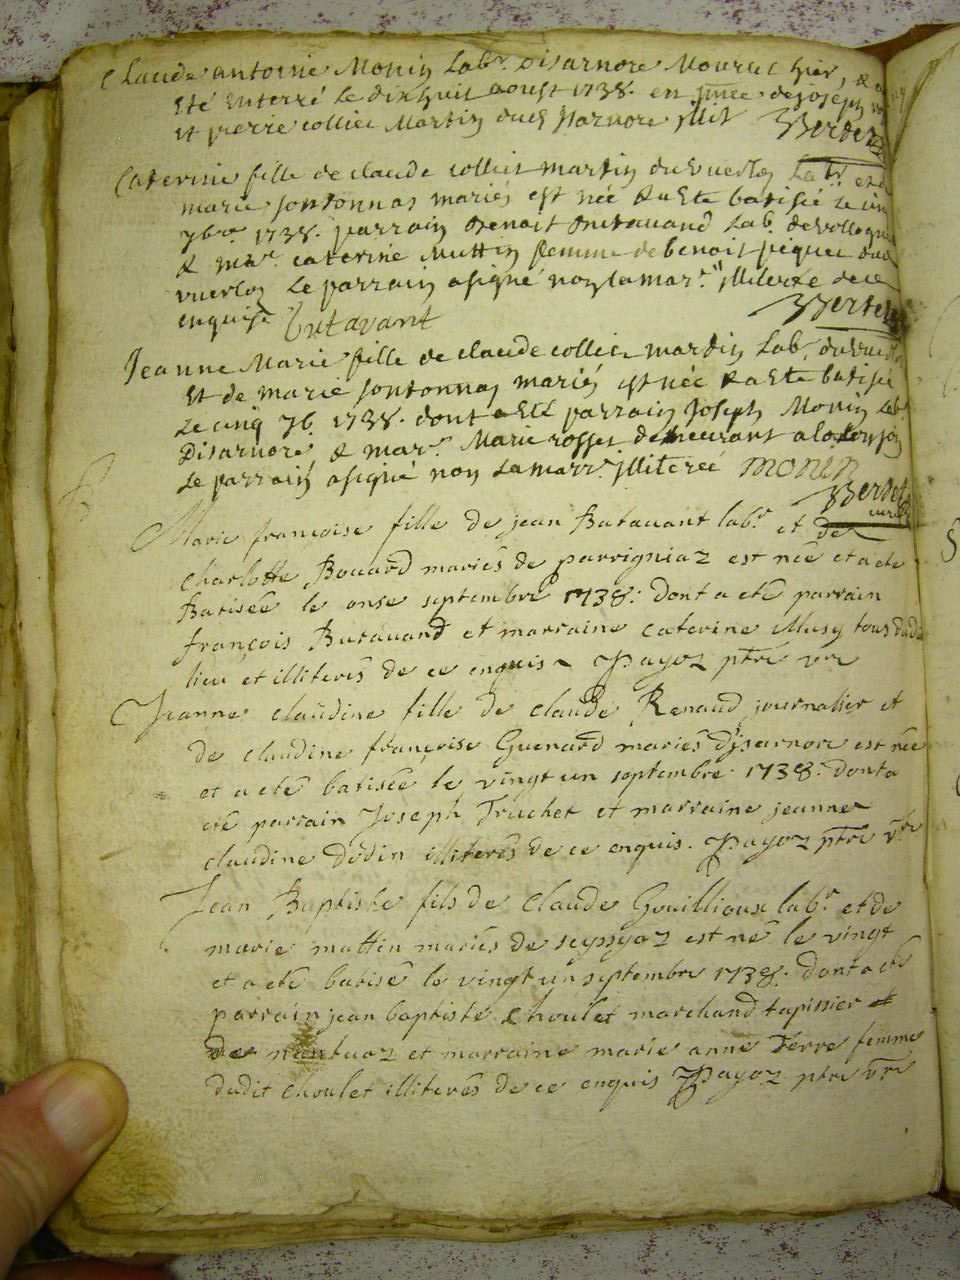 Claude antoine Monin Labr. Disarnore Mourut hier, & a
eté enterré le dix huit aoust 1738. en pnce de joseph
et pierre collier Martin dud Isarnore illit Verdet
Caterine fille de claude collier martin du Labr et de
marie jontonnas mariés est née & a ete batisée le cinq
7bre 1738. parrain Benoit Butavand Lab. de
& mar. caterine Muttin femme de benoit piquet dud
Le parrain a signé non la marr. illiterée de ce
enquise Butavant Verdet
Jeanne Marie fille de claude collier martin Lab. du
et de marie jontonnas mariés est née & a ete batisée
le cinq 7b. 1738. dont a eté parrain joseph Monin Lab
Disarnore & mar. Marie rosset demeurant a
Le parrain a signé non la marr. illiterée monin
Verdet
Marie françoise fille de jean Butavant labr. et de
charlotte Bouard mariés de parrigniaz est née et a eté
Batisée le onse septembre 1738. dont a eté parrain
françois Butavand et marraine caterine Musy tous dudi
lieu et illiterés de ce enquis Payoz ptre vre
Jeanne claudine fille de claude Renaud journalier et
de claudine françoise Guenard mariés disarnore est née
et a eté batisée le vingt un septembre 1738. dont a
eté parrain Joseph Truchet et marraine jeanne
claudine dödin illiterés de ce enquis. Payoz ptre vre
Jean Baptiste fils de claude Gouillioux labr. et de
marie mattin mariés de seyssyaz est né le vingt
et a eté batisé le vingt un septembre 1738. dont a eté
parrain jean baptiste choulet marchand tapissier et
de nantuaz et marraine marie anne Ferre femme
dudit choulet illiterés de ce enquis Payoz ptre vre